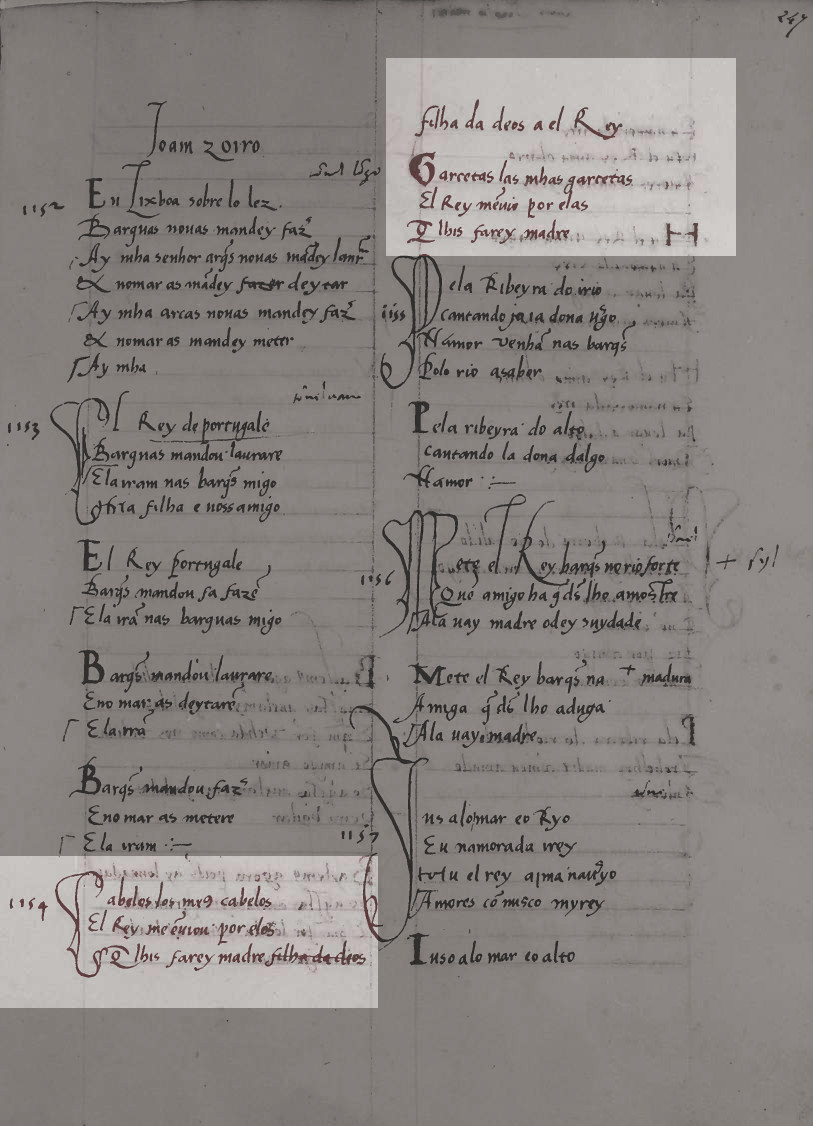 247
Joam zoiro
1152 En Lixboa sobre lo lez.
Barquas nouas mandey faz̃
Ay mha senhor arq̃s nouas mãdey lanr̃
& nomar as mãdey fazer deytar
Ay mha arcas nouas mandey faz̃
& nomar as mandey meter
Ay mha
1153 El Rey de portugale
Barquas mandou laurare
Ela iram nas barq̃s migo
filha e nossamigo
El Rey portugale
Barq̃s mandou fa fazẽ
Ela irã nas barquas migo
Barq̃s mandou laurare
Eno mar as deytarẽ
Ela irã
Barq̃s mandou faz̃
Eno mar as metere
Ela iram :~
1154 Cabelos los me9 cabelos
El Rey me ẽuiou por elos
Q lhis farey madre filha da deos
filha da deos a el Rey
Garcetas las mhas garcetas
El Rey mẽuio por elas
Q lhis farey madre
1155 Pela Ribeyra do irio
cantando ia la dona uĩgo
Hamor venhã nas barq̃s
Polo rio a saber
Pela ribeyra do alto
cantando la dona dalgo
Hamor :~
1156 Mete el Rey barq̃s no rio forte
Quẽ amigo ha q̃ d̃s lho amostre
Ala uay madre odey suydade
Mete el Rey barq̃s na + madura
Amiga q̃ d̃s lho aduga
Ala uay madre
1157 Jus alo mar eo Ryo
Eu namorada irey
hu el rey arma nauyo
Amores cõ uusco myrey
Iuso alo mar eo alto